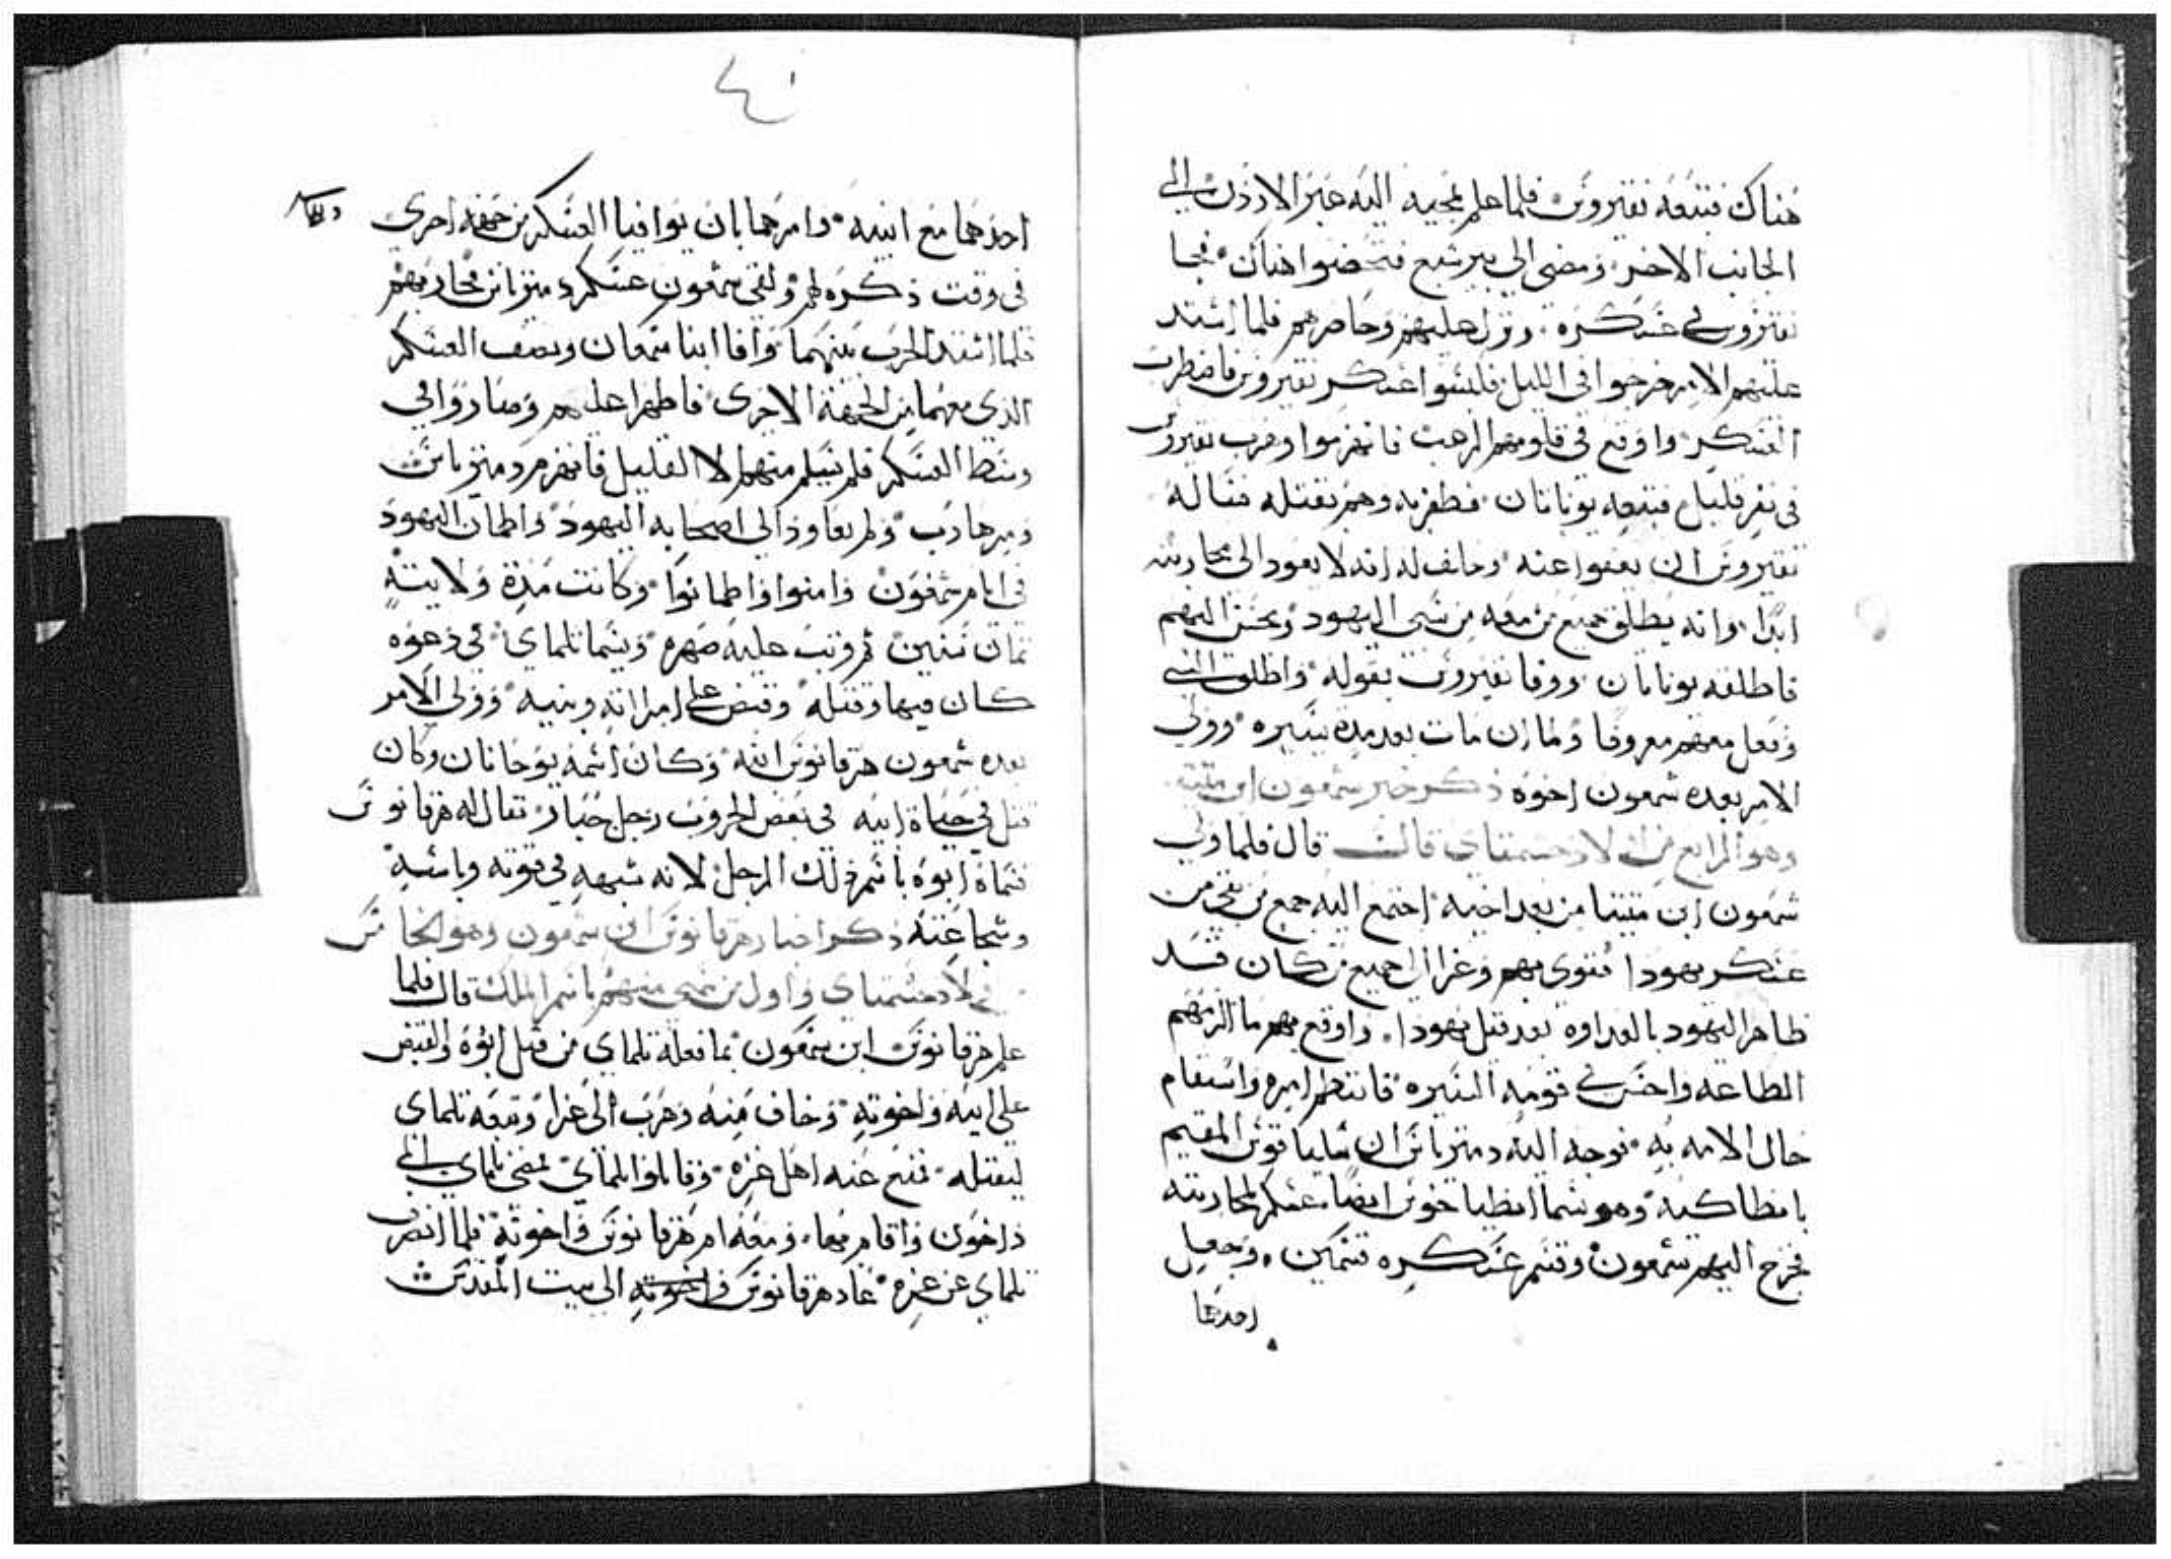 هناك فتبعه نقيروس فلما علم بمجيه اليه عبر الاردن الي
الجانب الاخر ومضى الى بير شبع فتحصنوا هناك فجا
نقيروس في عسكره ونزل عليهم وحاصرهم فلما اشتد
عليهم الامر خرجوا في الليل فلبسوا عسكر نقيروس فاضطرب
العسكر واوقع في قلوبهم الرعب فانهزموا وهرب نقيروس
في نفر قليل فتبعه يوناتان فظفر به وهم بقتله فساله
نقيروس ان يعفوا عنه وحلف له انه لا يعود الى محاربته
ابدا وانه يطلق جميع من معه من سبى اليهود ويحسن اليهم
فاطلقه يوناتان ووفا نقيروس بقوله واطلق السبي
وفعل معهم معروفا ولما ان مات بعد مدة يسيره وولي
الامر بعده شمعون اخوه ذكر خبر شمعون ابن متتيه
وهو الرابع من اولاد حشمناي قالـــ قال فلما ولي
شمعون ابن متتيا من بعد اخيه اجتمع اليه جمع من بقي من
عسكر يهودا فتوى بهم وغزا الى جميع من كان قـد
ظاهر اليهود بالعداوه بعد قتل يهودا واوقع بهم ما الزمهم
الطاعه واحسن في قومه السيره فانتظم امره واستقام
حال الامه به فوجه اليه دمتريانس ابن سلياقوس المقيم
بانطاكيه وهو سما انطياخوس ايضا عسكر لمحاربته
فخرج اليهم شمعون وقسم عسكره قسمين وجعل
احدهما
٤٠
احدهما مع ابنيه وامرهما بان يوافيا العسكر من جهه اخرى
في وقت ذكره لهم ولقي شمعون عسكر دمتريانس محاربهم
فلما اشتد الحرب بينهما وافا ابنا شمعان ونصف العسكر
الذي معهما من الجهة الاخرى فاظهرا عليهم وصاروا في
وسط العسكر فلم يسلم منهم الا القليل فانهزم دمتريانس
ومر هارب ولم يعاود الى اصحابه اليهود واطمان اليهود
في ايام شمعون وامنوا واطمانوا وكانت مدة ولايته
ثمان سنين ثم وثب عليه صهره ويسما تلماي في دعوه
كان فيها وقتله وقبض على امراته وبنيه وولي الامر
بعده شمعون هرقانوس ابنه وكان اسمه يوحانان وكان
قتل في حياة ابيه في بعض الحروب رجل جبار تقال له هرقانوس
فسماة ابوه باسم ذلك الرجل لانه شبهه في قوته وباسه
وشجاعته ذكر اخبار هرقانوس ابن شمعون وهو الخامس
من اولاد حشمناي واول من سمي منهم باسم الملك قال فلما
علم هرقانوس ابن شمعون بما فعله تلماي من قتل ابوه والقبض
على ابيه واخوته وخاف منه وهرب الى غزا وتبعه تلماي
ليقتله فمنع عنه اهل غزه وقاتلوا تلماي فمضى تلماي الى
داخون واقام بها ومعه ام هرقانوس واخوته فلما انصرف
تلماي عن غزه عاد هرقانوس واخوته الى بيت المقدس